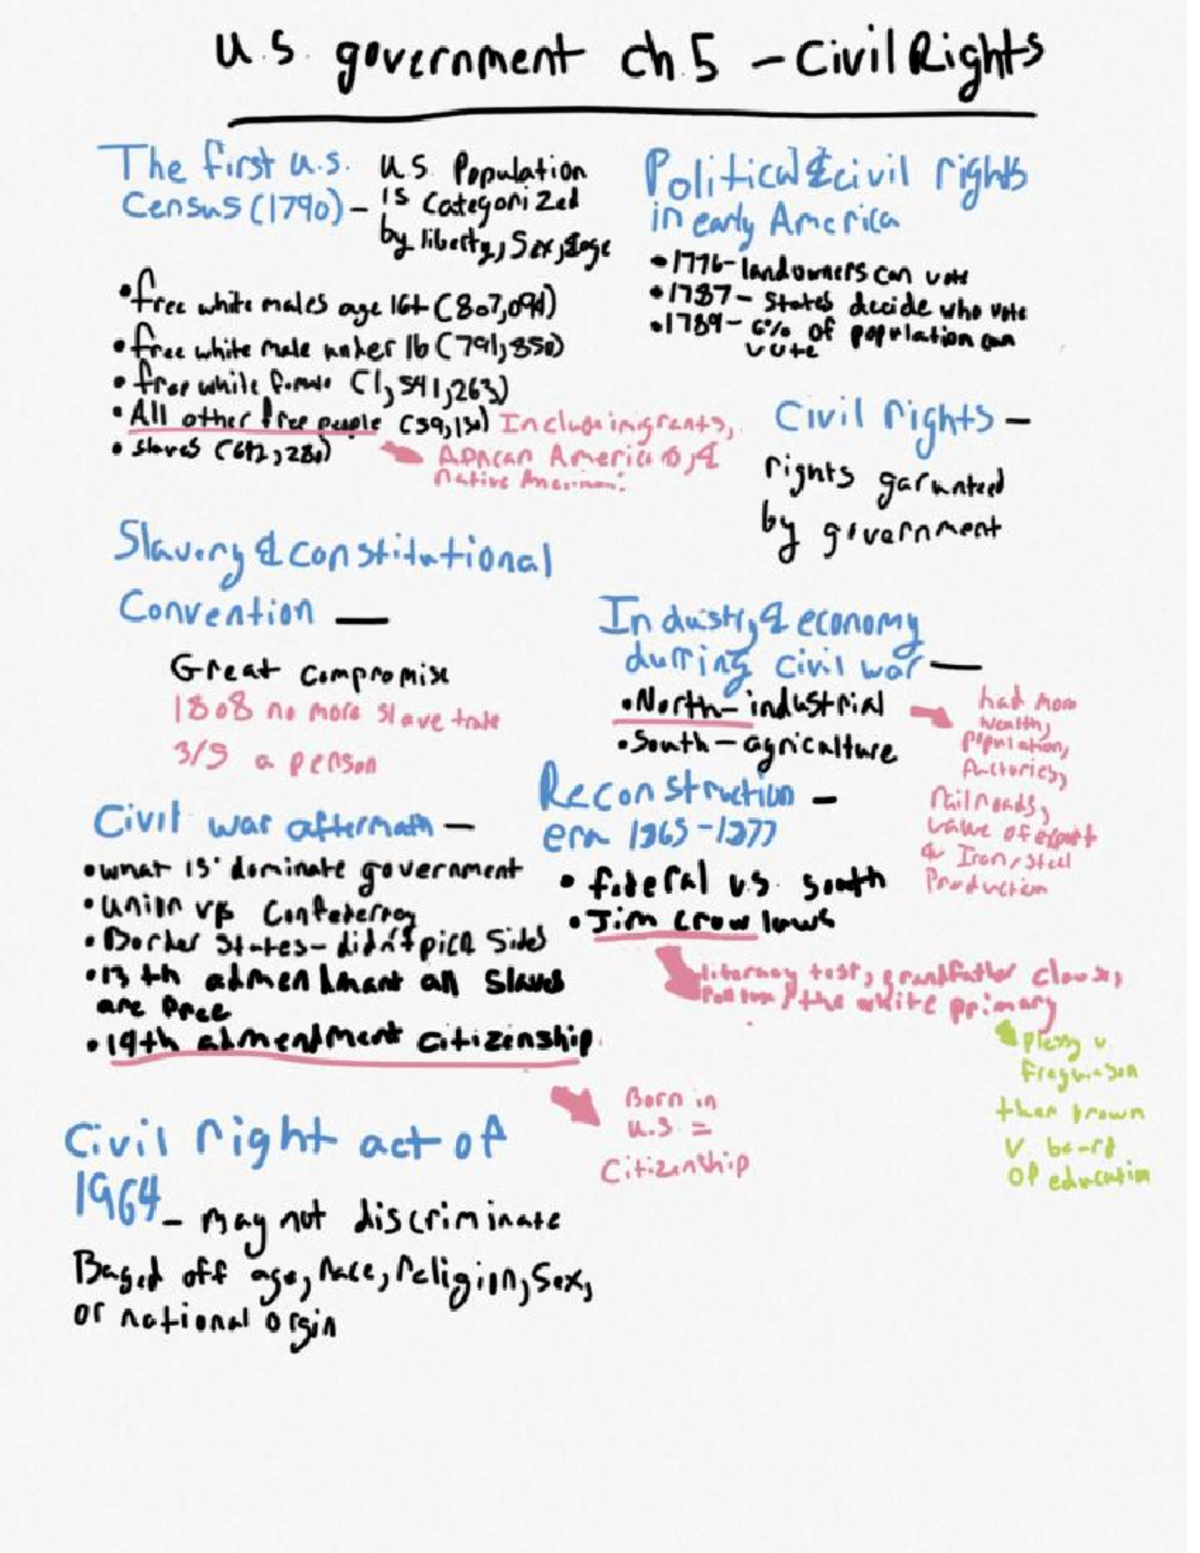 U.S. government ch.5 - Civil Rights
The first U.S.
Census (1790) -
U.S. Population
is Categorized
by liberty, Sex, & age
• free white males age 16+ (807,094)
• free white male unher 16 (791,850)
• free while female (1,541,263)
• All other free people (59,150)
Include imigrants,
African Americans, &
native American.
• slaves (692,280)
Political & civil rights
in early America
• 1776 - landowners can vote
• 1787 - States decide who vote
• 1789 - 6% of population can
vote
Civil rights -
rights garunteed
by government
Slavery & constitutional
Convention -
Great compromise
1808 no more slave trade
3/5 a person
Industry & economy
durring civil war -
• North - industrial
• South - agriculture
had more
wealth,
population,
factories,
railroads,
value of export
& Iron, steel
Production
Civil war aftermath -
• what is dominate government
• union vs Confederacy
• Border States - didn't pick sides
• 13th admendmant all Slaves
are free
• 14th admendment citizenship
Born in
U.S =
Citizenship
Reconstruction -
era 1865-1877
• federal v.s. south
• Jim crow laws
literacy test, grandfather clause,
the white primary
Plessy v
Freguson
then brown
v board
of education
Civil right act of
1964 - may not discriminate
Based off age, race, religion, sex,
or national orgin